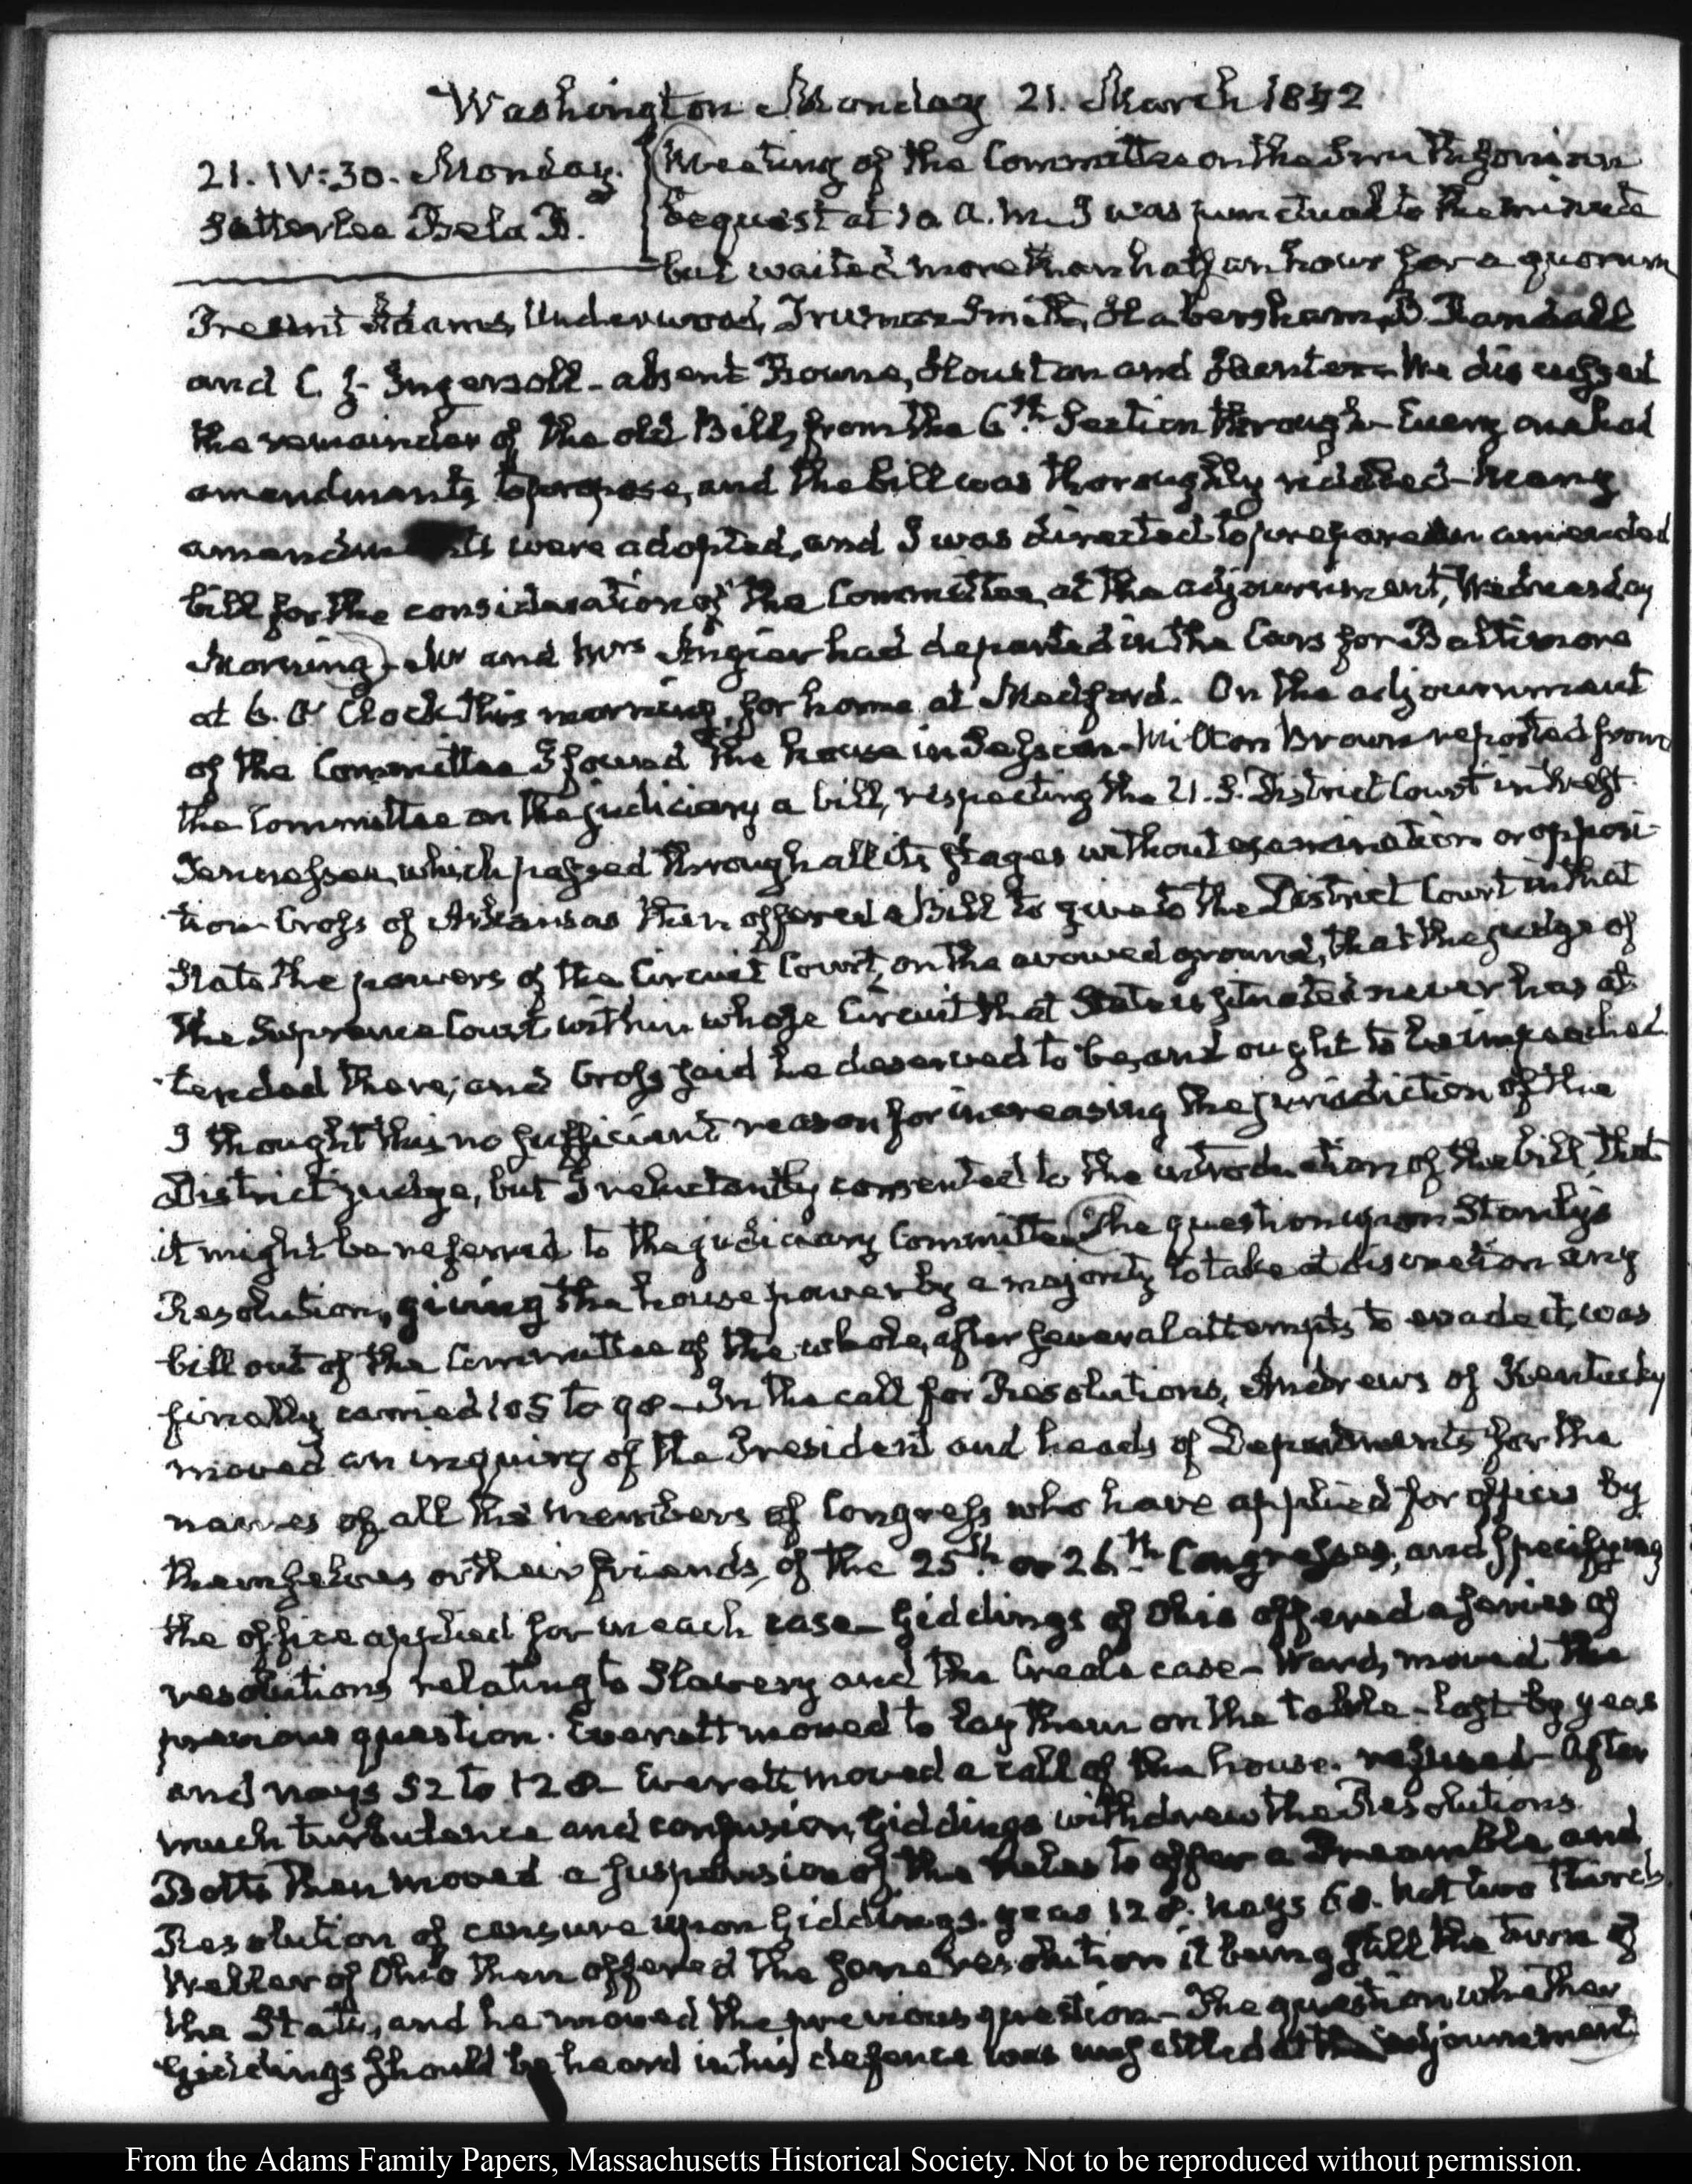 Washington Monday 21. March 1842
21. IV:30. Monday.
Satterlee Bela B.
Meeting of the Committee on the Smithsonian
bequest at 10 a.m. I was punctual to the minute
but waited more than half an hour for a quorum
Present Adams, Underwood, Truman Smith, Habersham, B. Randall
and C. J. Ingersoll - absent Bowne, Houston and Hunter - We discussed
the remainder of the old Bill, from the 6th. Section through - Every one had
amendments to propose, and the bill was thoroughly - Many
amendments were adopted, and I was directed to prepare an amended
bill for the consideration of the Committee, at the adjournment, Wednesday
Morning) - Mr and Mrs Angier had departed in the Cars for Baltimore
at 6. O'Clock this morning, for home at Medford. On the adjournment
of the Committee I found the house in Session - Milton Brown reported from
the Committee on the judiciary a bill, respecting the U.S. District Court in West
Tennessee, which passed through all its stages without examination or opposi-
tion - Cross of Arkansas then offered a Bill to give to the District Court in that
State the powers of the Circuit Court, on the avowed ground, that the judge of
the Supreme Court within whose Circuit that State is situated never has at-
tended there; and Cross said he deserved to be, and ought to be impeached
I thought this no sufficient reason for increasing the jurisdiction of the
District judge, but I reluctantly consented to the introduction of the bill, that
it might be referred to the judiciary Committee (The question upon Stanly's
Resolution, giving the house power by a majority to take at discretion any
bill out of the Committee of the whole, after several attempts to evade it, was
finally carried 105 to 98 - In the call for Resolutions, Andrews of Kentucky
moved an inquiry of the President and heads of Departments for the
names of all the Members of Congress who have applied for offices by
themselves or their friends, of the 25th. or 26th. Congresses, and specifying
the office applied for in each case - Giddings of Ohio offered a series of
resolutions relating to Slavery and the Creole case - Ward, moved the
previous question. Everett moved to lay them on the table - lost by yeas
and nays 52 to 128 - Everett moved a call of the house. refused - After
much turbulence and confusion, Giddings withdrew the Resolutions.
Botts then moved a suspension of the rules to offer a Preamble and
Resolution of censure upon Giddings. yeas 128. nays 68. not two thirds.
Weller of Ohio then offered the same resolution it being still the turn of
the State, and he moved the previous question - The question whether
Giddings should be heard in his defence was unsettled at the adjournment)
From the Adams Family Papers, Massachusetts Historical Society. Not to be reproduced without permission.